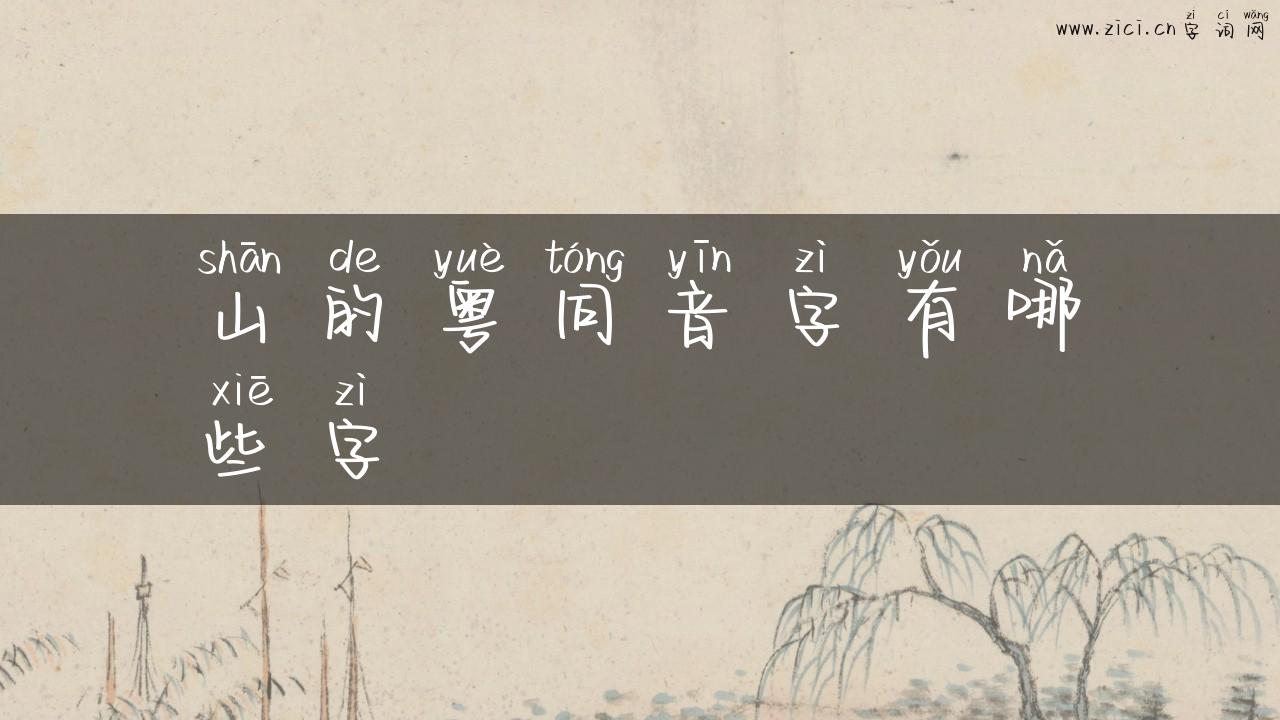 zì cí wǎng
www.zici.cn 字词网
shān de yuè tóng yīn zì yǒu nǎ
山的粤同音字有哪
xiē zì
些字